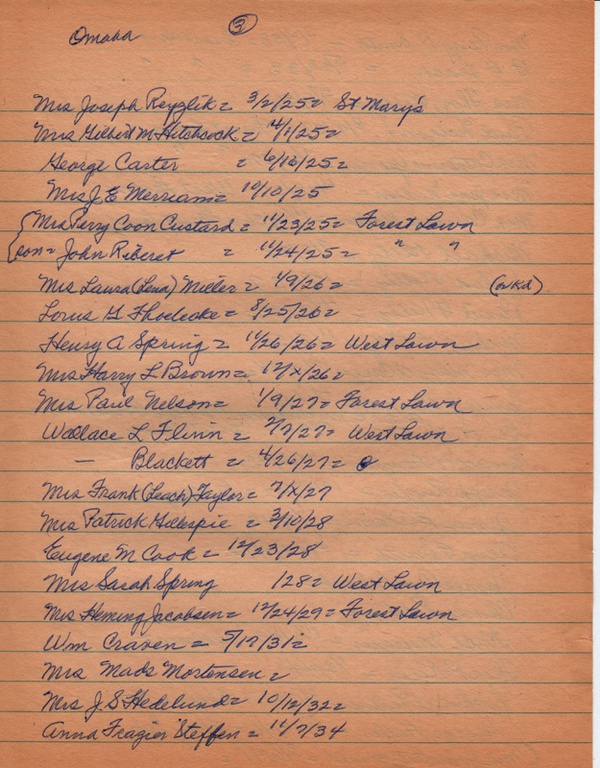 Omaha ③
Mrs Joseph Reyzlik = 3/2/25 = St Mary's
Mrs Gilbert M Hitchcock = 4/1/25 =
George Carter = 6/16/25 =
Mrs J E Merriam = 10/10/25
Mrs Perry Coon Custard = 11/23/25 = Forest Lawn
son = John Riberet = 11/24/25 = " "
Mrs Laura (Lena) Miller = 1/9/26 = (wkd)
Lorus G Thoelecke = 8/25/26 =
Henry A Spring = 11/26/26 = West Lawn
Mrs Harry L Brown = 12/x/26 =
Mrs Paul Nelson = 1/9/27 = Forest Lawn
Wallace L Flinn = 2/7/27 = West Lawn
— Blackett = 4/26/27 =
Mrs Frank (Leach) Taylor = 7/x/27
Mrs Patrick Gillespie = 3/10/28
Eugene M Cook = 12/23/28
Mrs Sarah Spring 128 = West Lawn
Mrs Heming Jacobsen = 12/24/29 = Forest Lawn
Wm Craven = 5/19/31 =
Mrs Mads Mortensen =
Mrs J. S Hedelund = 10/12/32 =
Anna Frazier Steffen = 11/7/34